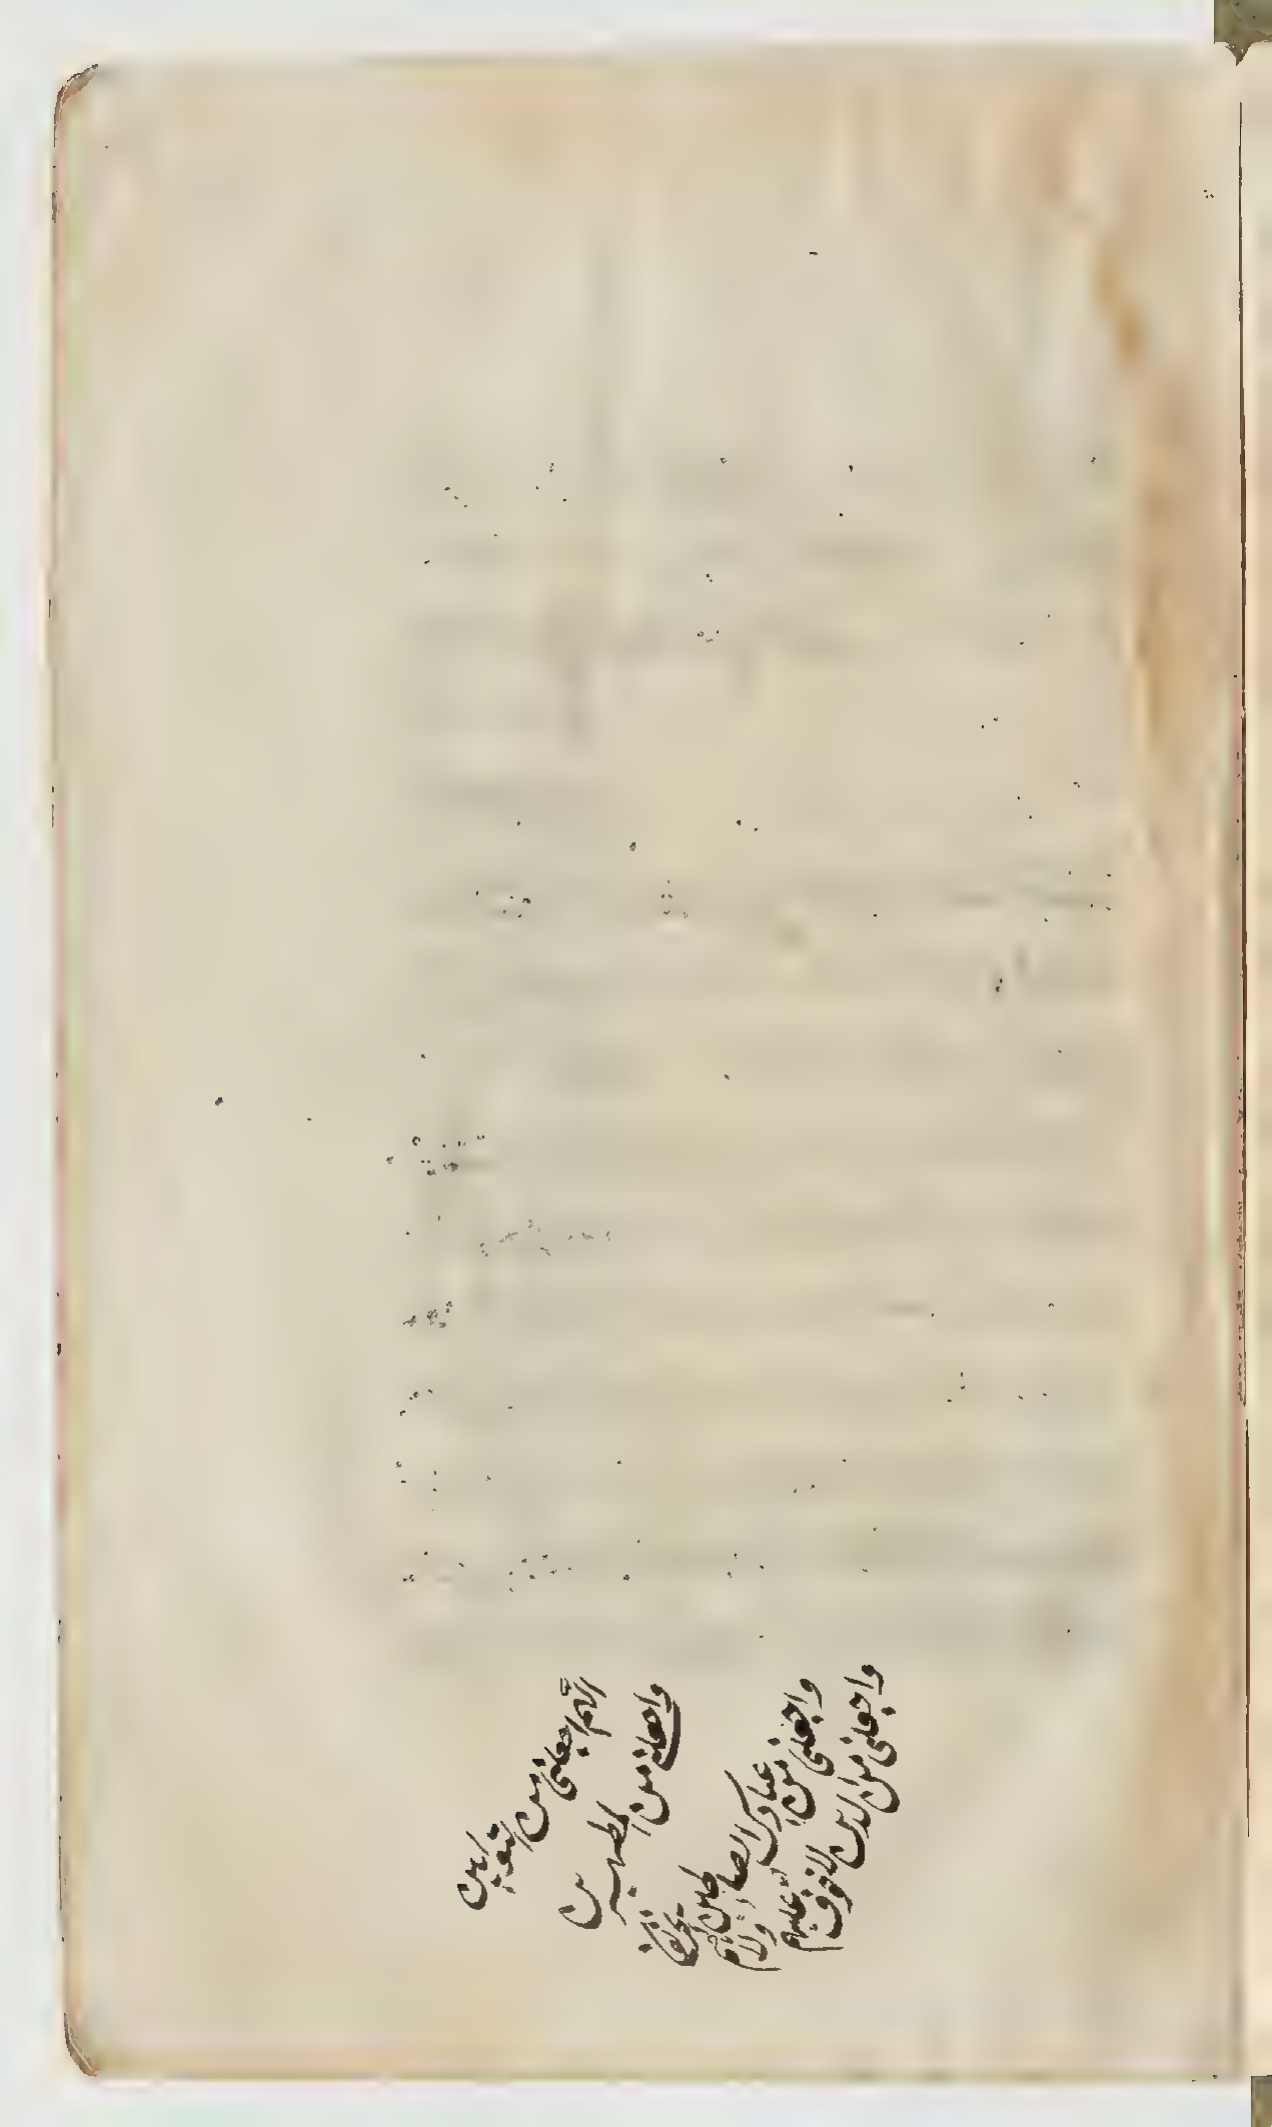 اللهم اجعلنی من التوابین
واجعلنی من المطهرین
واجعلنی من عبادک الصالحین
واجعلنی من الذین لا خوف علیهم
ولا هم یحزنون